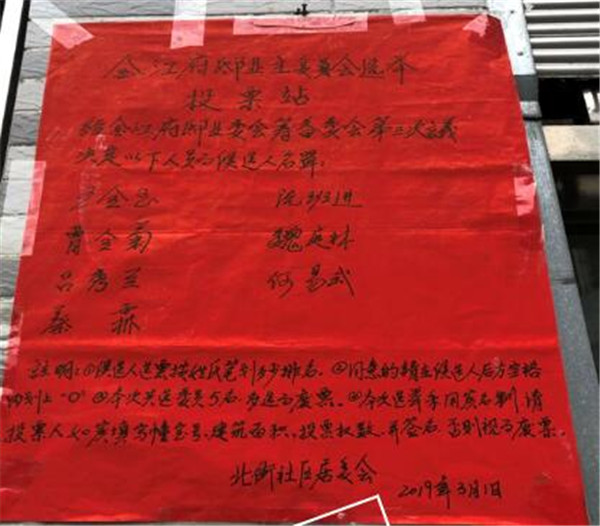 金江府邸业主委员会选举
投票站
经金江府邸业委会筹备委会第三次会议
决定以下人员为候选人名单:
金 阮班进
曹全菊 魏廷林
吕秀兰 何易武
秦霖
注明:①候选人选票按姓氏笔划多少排名.②同意的请在候选人后方空格
内划上"O"③本次共选委员5名,多选为废票.④本次选举采用实名制,请
投票人如实填写幢室号、建筑面积、投票权数,并签名,否则视为废票.
北街社区居委会 2019年3月1日